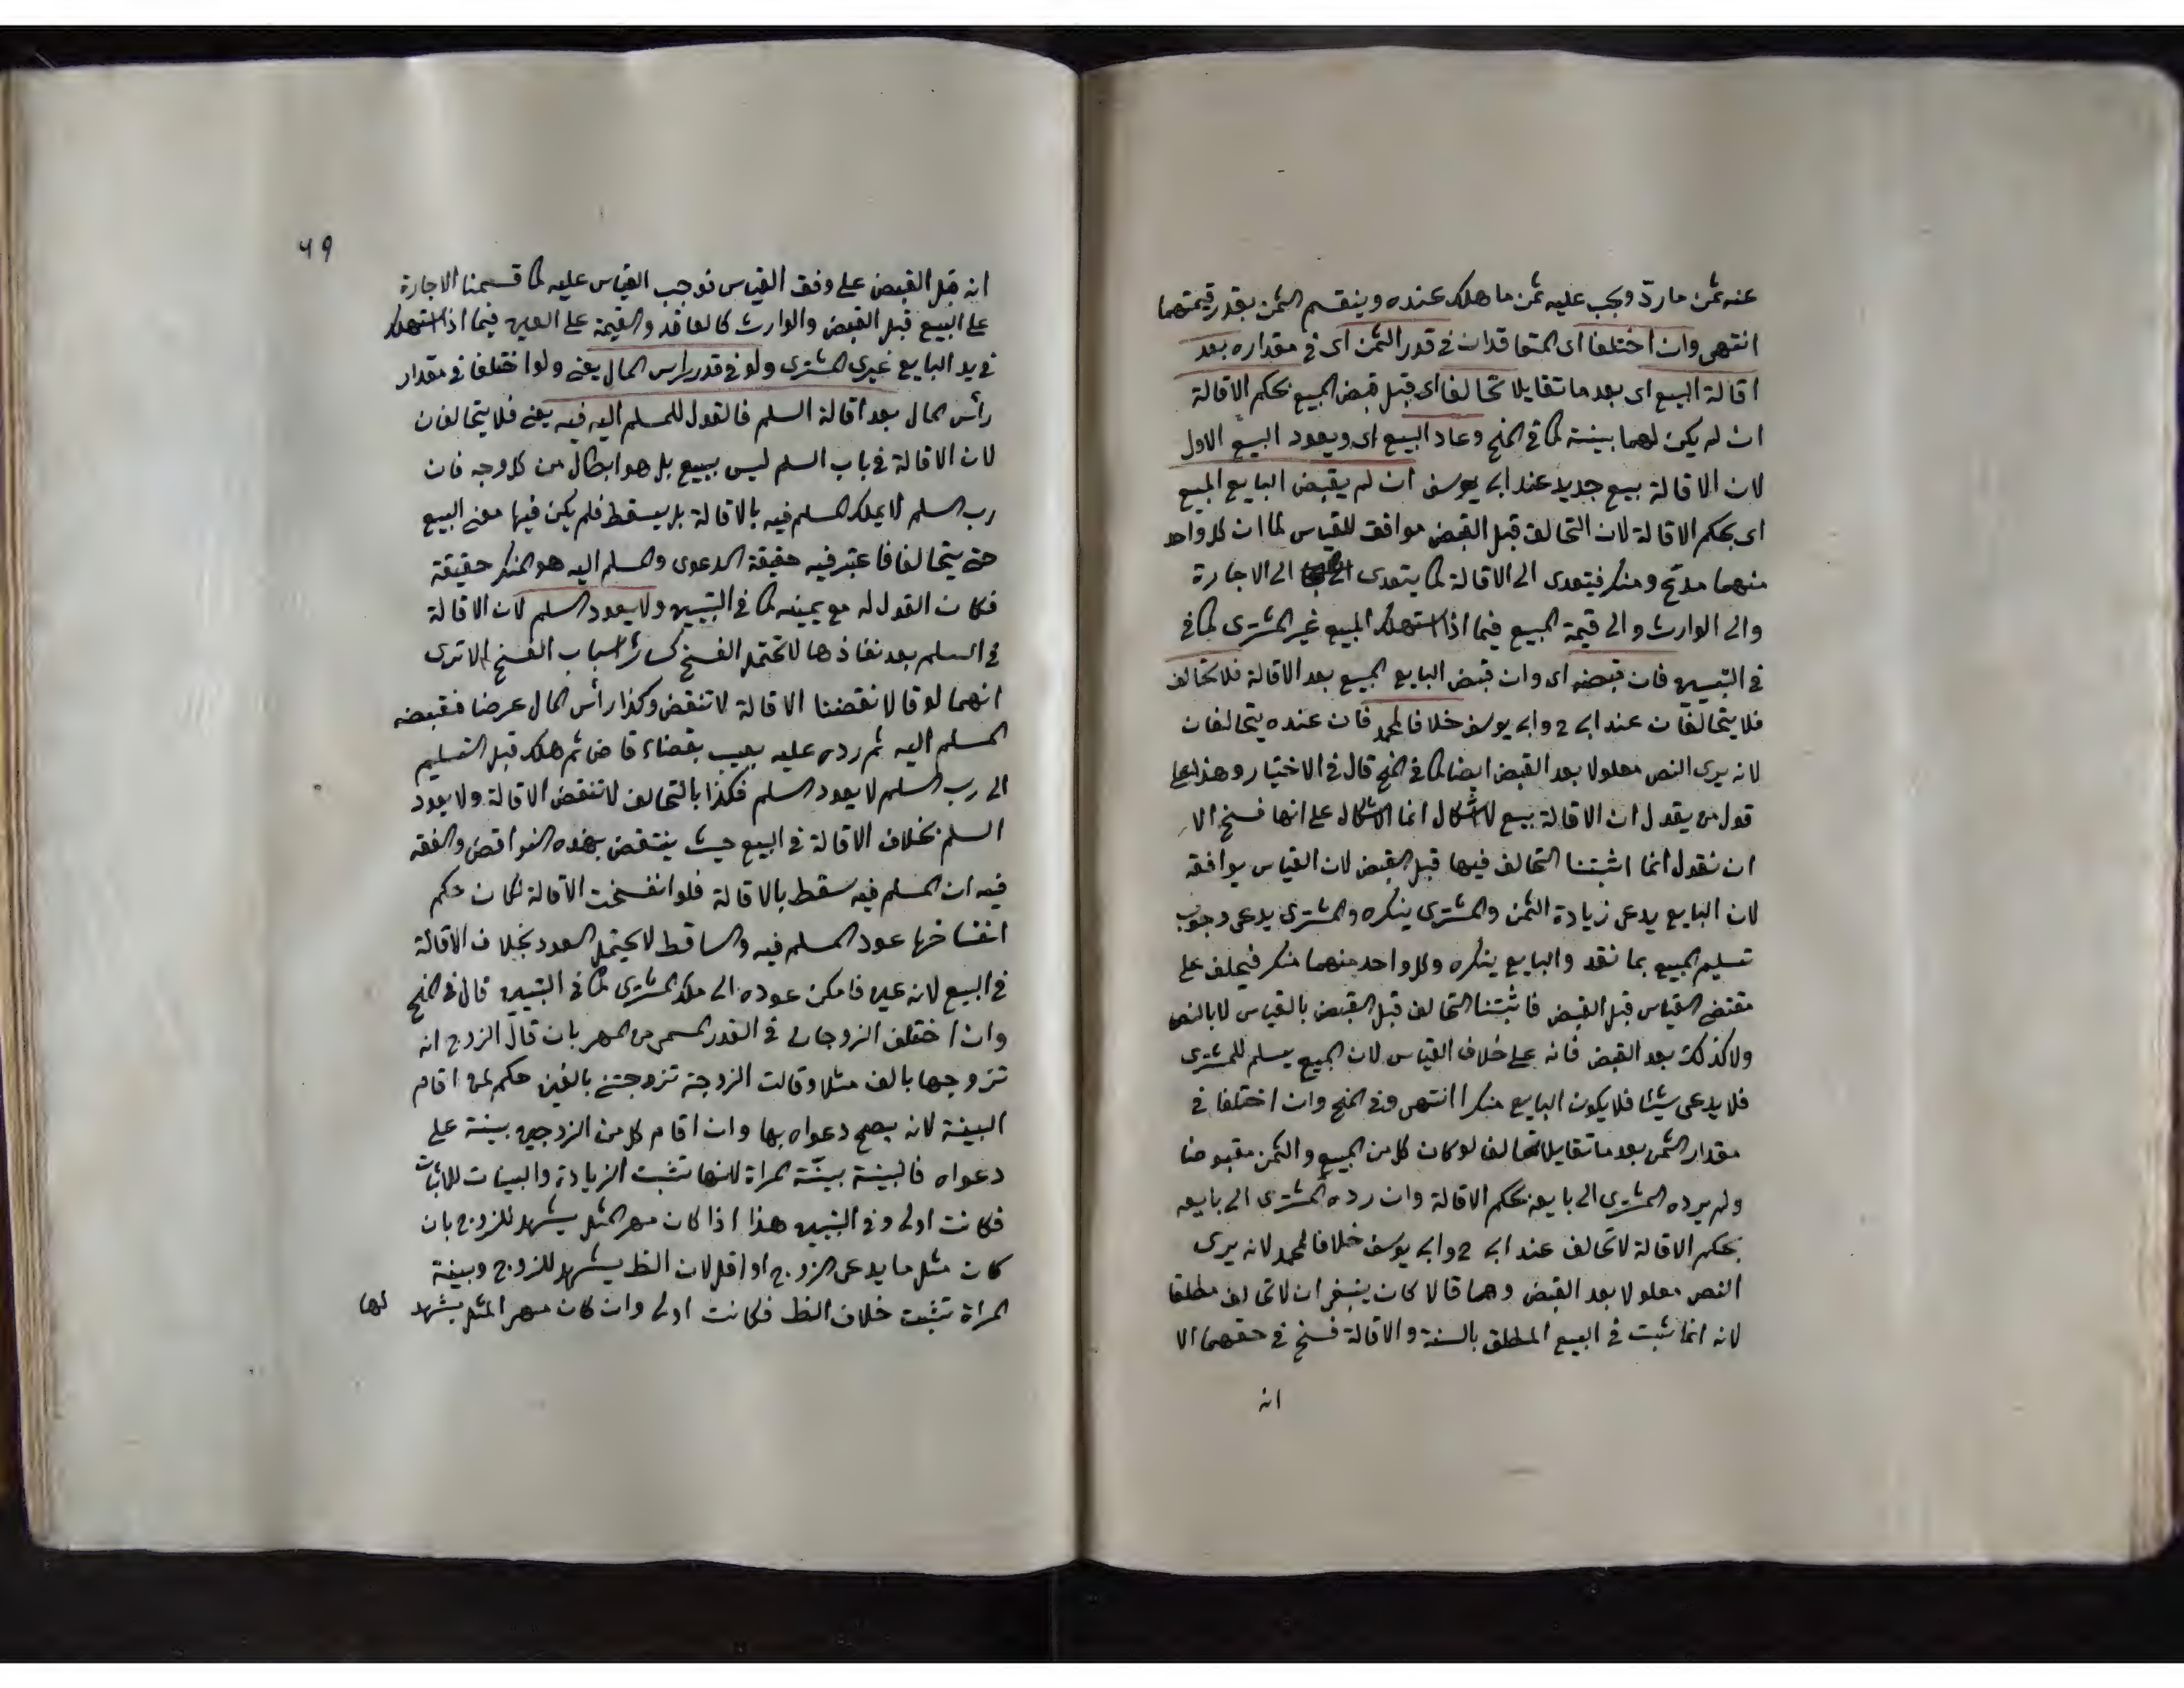 عنه ثمن ما ردّ ويجب عليه ثمن ما هلك عنده وينقسم الثمن بقدر قيمتهما
انتهى وان اختلفا اى المتعاقدان فى قدر الثمن اى فى مقداره بعد
اقالة البيع اى بعد ما تقايلا تحالفا اى قبل قبض المبيع بحكم الاقالة
ان لم يكن لهما بينة كما فى المنح وعاد البيع اى ويعود البيع الاول
لان الاقالة بيع جديد عند ابى يوسف ان لم يقبض البايع المبيع
اى بحكم الاقالة لان التحالف قبل القبض موافق للقياس لما ان كل واحد
منهما مدّع ومنكر فيتعدى الى الاقالة كما يتعدى الى الاجارة
والى الوارث والى قيمة المبيع فيما اذا استهلك المبيع غير المشترى كما فى
فى التبيين فان قبضه اى وان قبض البايع المبيع بعد الاقالة فلا تحالف
فلا يتحالفان عند ابى ح وابى يوسف خلافا لمحمد فان عنده يتحالفان
لانه يرى النص معلولا بعد القبض ايضا كما فى المنح قال فى الاختيار وهذا على
قول من يقول ان الاقالة بيع لا اشكال انما الاشكال على انها فسخ الا
ان نقول انما اثبتنا التحالف فيها قبل القبض لان القياس يوافقه
لان البايع يدعى زيادة الثمن والمشترى ينكره والمشترى يدعى وجوب
تسليم المبيع بما نقد والبايع ينكره وكل واحد منهما منكر فيحلف على
مقتضى القياس قبل القبض فاثبتنا التحالف قبل القبض بالقياس لا بالنص
ولا كذلك بعد القبض فانه على خلاف القياس لان المبيع يسلم للمشترى
فلا يدعى شيئا فلا يكون البايع منكرا انتهى وفى المنح وان اختلفا فى
مقدار الثمن بعد ما تقايلا تحالفا لو كان كل من المبيع والثمن مقبوضا
ولم يرده المشترى الى بايعه بحكم الاقالة وان رده المشترى الى بايعه
بحكم الاقالة لا تحالف عند ابى ح وابى يوسف خلافا لمحمد لانه يرى
النص معلولا بعد القبض وهما قالا كان ينبغى ان لا تحالف مطلقا
لانه انما ثبت فى البيع المطلق بالسنة والاقالة فسخ فى حقهما الا
انه
٦٩
انه قبل القبض على وفق القياس فوجب القياس عليه كما قسمنا الاجارة
على البيع قبل القبض والوارث كالعاقد والقيمة على العين فيما اذا استهلك
فى يد البايع غيرى المشترى ولو فى قدر راس المال يعنى ولو اختلفا فى مقدار
رأس المال بعد اقالة السلم فالقول للمسلم اليه فيه يعنى فلا يتحالفان
لان الاقالة فى باب السلم ليس ببيع بل هو ابطال من كل وجه فان
رب السلم لا يملك المسلم فيه بالاقالة بل يسقط فلم يكن فيها معنى البيع
حتى يتحالفا فاعتبر فيه حقيقة الدعوى والمسلم اليه هو المنكر حقيقة
فكان القول له مع يمينه كما فى التبيين ولا يعود السلم لان الاقالة
فى السلم بعد نفاذها لا تحتمل الفسخ كسائر اسباب الفسخ الا ترى
انهما لو قالا نقضنا الاقالة لا تنقض وكذا رأس المال عرضا فقبضه
المسلم اليه ثم رده عليه بعيب بقضاء قاض ثم هلك قبل التسليم
الى رب السلم لا يعود السلم فكذا بالتحالف لا تنقض الاقالة ولا يعود
السلم بخلاف الاقالة فى البيع حيث ينتقض بهذه النواقض والفقه
فيه ان المسلم فيه سقط بالاقالة فلو انفسخت الاقالة لكان حكم
انفساخها عود المسلم فيه والساقط لا يحتمل العود بخلاف الاقالة
فى البيع لانه عين فامكن عوده الى ملك المشترى كما فى التبيين قال فى المنح
وان اختلف الزوجان فى القدر المسمى من المهر بان قال الزوج انه
تزوجها بالف مثلا وقالت الزوجة تزوجتنى بالفين حكم لمن اقام
البينة لانه يصح دعواه بها وان اقام كل من الزوجين بينة على
دعواه فالبينة بيّنة المراة لانها تثبت الزيادة والبينات للاثبات
فكانت اولى وفى التبيين هذا اذا كان مهر المثل يشهد للزوج بان
كان مثل ما يدعى الزوج او اقل لان الظ يشهد للزوج وبينة
المراة تثبت خلاف الظ فكانت اولى وان كان مهر المثل يشهد لها